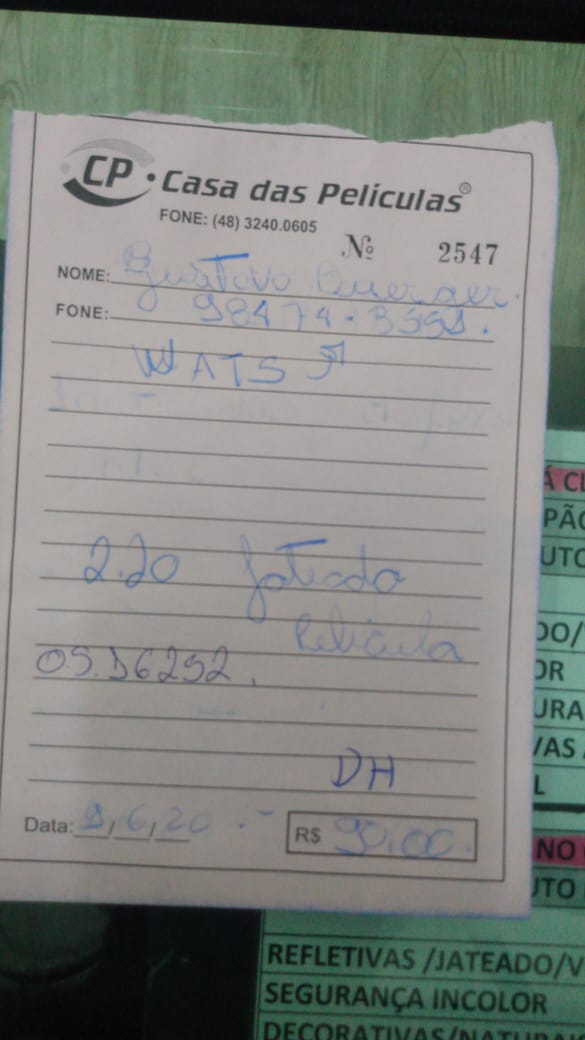 CP • Casa das Películas®
FONE: (48) 3240.0605
Nº 2547
NOME: Gustavo Buerger.
FONE: 98474.3551.
WATS
2.20 Jateado
Pelicula
OS.16252.
DH
Data: 9/6/20 R$ 90,00.
Á CL
PÃO
UTO
DO/
OR
URA
VAS
L
NO
UTO
REFLETIVAS /JATEADO/V
SEGURANÇA INCOLOR
DECORATIVAS/NATURA